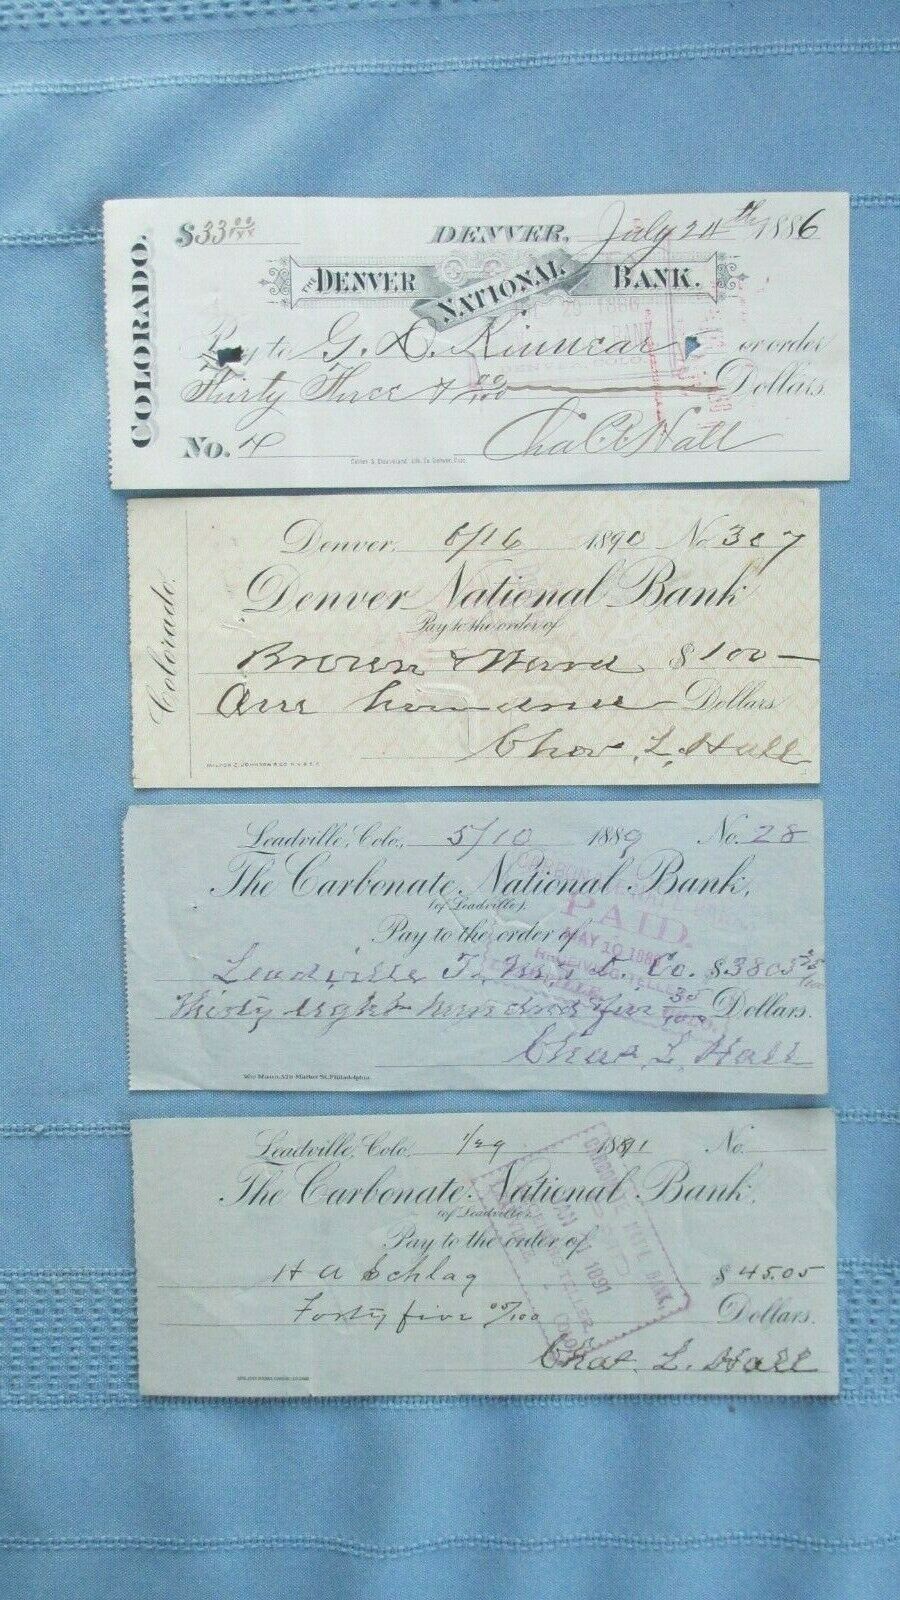 COLORADO.
$33 00/xx DENVER, July 24th 1886
THE DENVER NATIONAL BANK.
Pay to G. D. Kinnear or order
Thirty Three & 00/100 Dollars.
No. 4 Chas. L. Hall
Colorado.
Denver, 6/16 1890 No. 307
Denver National Bank
Pay to the order of
Brown & Ward $100—
One hundred Dollars
Chas. L. Hall
MILTON C. JOHNSON & CO. N.Y.
Leadville, Colo., 5/10 1889 No. 28
The Carbonate National Bank,
(of Leadville).
PAID.
MAY 10 1889
RECEIVING TELLER
Pay to the order of
Leadville Co. $3805 35/100
Thirty eight hundred five 35/100 Dollars.
Chas L. Hall
Wm Mann, 529 Market St. Philadelphia
Leadville, Colo., 1/29 1891 No.
The Carbonate National Bank,
(of Leadville).
CARBONATE NAT'L BANK,
JAN 1891
Pay to the order of
H A Schlag $45.05
Forty five 05/100 Dollars.
Chas. L. Hall